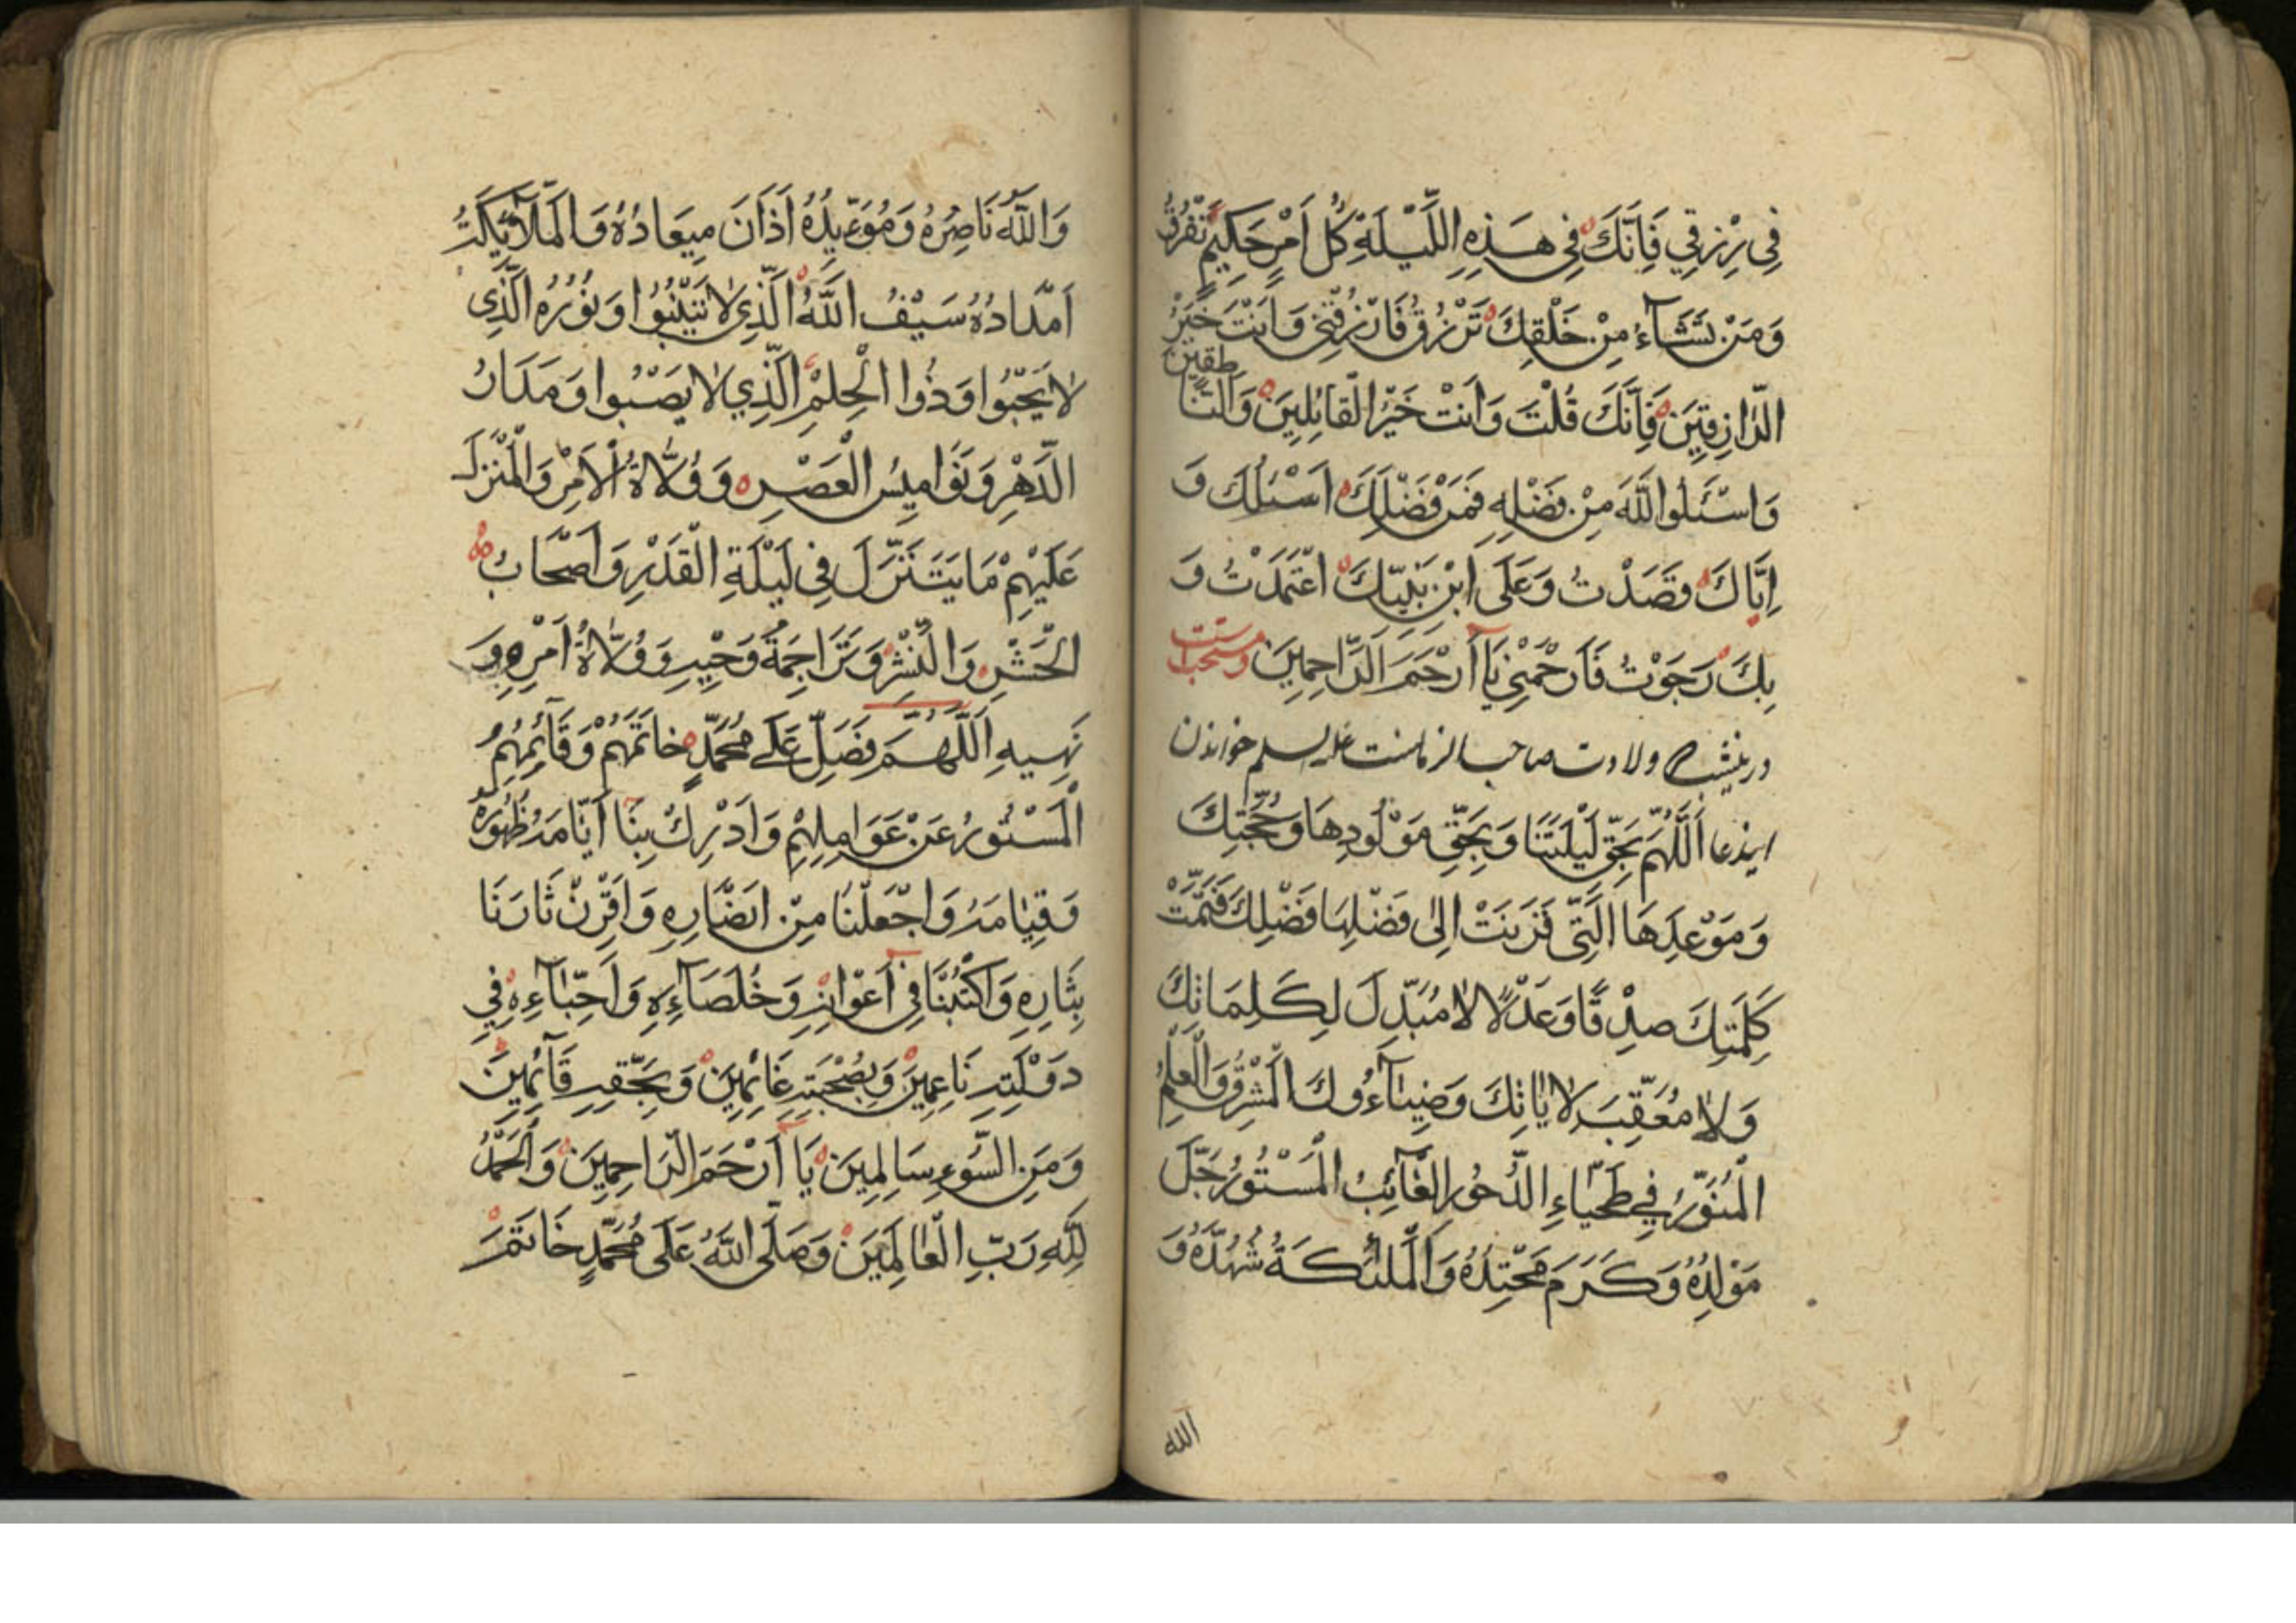 فِى رِزْقِي فَاِنَّكَ فِى هَذِهِ اللَّيْلَةِ كُلَّ اَمْرٍ حَكِيمٍ تَفْرُقُ
وَمَنْ تَشَآءُ مِنْ خَلْقِكَ تَرْزُقُ فَارْزُقْنِى وَاَنْتَ خَيْرُ
الرَّازِقِينَ فَاِنَّكَ قُلْتَ وَاَنْتَ خَيْرُ الْقَائِلِينَ وَالنَّا
طِقِينَ
وَاسْئَلُوا اللَّهَ مِنْ فَضْلِهِ فَمَنْ فَضْلِكَ اَسْئَلُكَ وَ
اِيَّاكَ قَصَدْتُ وَعَلَى ابْنِ نَبِيِّكَ اعْتَمَدْتُ وَ
بِكَ رَجَوْتُ فَارْحَمْنِى يَا اَرْحَمَ الرَّاحِمِينَ ومستحب است
درينشب ولادت صاحب الزمانست عليه السلم خواندن
ايندعا اَللَّهُمَّ بِحَقِّ لَيْلَتِنَا وَبِحَقِّ مَوْلُودِهَا وَحُجَّتِكَ
وَمَوْعِدِهَا الَّتِى قَرَنَتْ اِلَى فَضْلِهَا فَضْلِكَ فَتَمَّتْ
كَلِمَتِكَ صِدْقًا وَعَدْلًا لَا مُبَدِّلَ لِكَلِمَاتِكَ
وَلَا مُعَقِّبَ لِاٰيَاتِكَ وَضِيَآءُوكَ الْمَشْرِقُ وَالْعَلَمُ
الْمُنَوَّرُ فِي طَخْيَاءِ الدَّحُورِ الْغَآئِبُ الْمَسْتُورُ جَلَّ
مَوْلِدُهُ وَكَرَمَ مَحْتِدُهُ وَالْمَلَئِكَةُ شُهَّدُهُ وَ
الله
وَاللَّهُ نَاصِرُهُ وَمُؤَيِّدُهُ اَذَاآنَ مِيعَادُهُ وَالْمَلَآئِكَةُ
اَمْدَادُهُ سَيْفُ اللَّهُ الَّذِى لَا تَيْنُبُوا وَنُوُرُهُ الَّذِى
لَا يَخْبُوا وَذُوا الْحِلْمِ الَّذِي لَا يَصْبُوا وَمَدَارُ
الدَّهْرِ وَنَوَامِيسُ الْعَصْرِ وَوُلَاةُ الْاَمْرِ وَالْمُنَزَّلَ
عَلَيْهِمْ مَا يَتَنَزَّلَ فِى لَيْلَةِ الْقَدْرِ وَاَصْحَابُ
الْحَشْرِ وَالنَّشْرِ وَتَرَاجِمَةُ وَحْيِهِ وَوُلَاةُ اَمْرِهِ وَ
نَهِيهِ اَللَّهُمَّ فَصَلِّ عَلَى مُحَمَّدٍ خَاتَمَهُمْ وَقَآئِمُهُمْ
الْمَسْتُورُ عَنْ عَوَامِلِهِمْ وَاَدْرِكْ بِنَا اَيَّامَهُ ظُهُورَهُ
وَقِيَامَهُ وَاجْعَلْنَا مِنْ اَنْصَارِهِ وَاقْرِنْ ثَارَنَا
بِثَارِهِ وَاكْتُبْنَا فِى اَعْوَانِهِ وَخُلَصَآءِهِ وَاَحِبَّآءِهِ فِي
دَوْلَتِهِ نَاعِمِينَ وَبِصُحْبَتِهِ غَانِمِينَ وَبِحَقِّهِ قَآئِمِينَ
وَمَنِ السُّوءِ سَالِمِينَ يَا اَرْحَمَ الرَّاحِمِينَ وَالْحَمْدُ
لِلَّهِ رَبِّ الْعَالَمِينَ وَصَلَى اللَّهُ عَلَى مُحَمَّدٍ خَاتَمَ